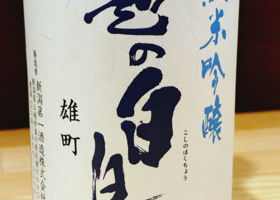 純米吟醸
越の白鳥
こしのはくちょう
雄町
製造者
新潟第一酒造株式会社